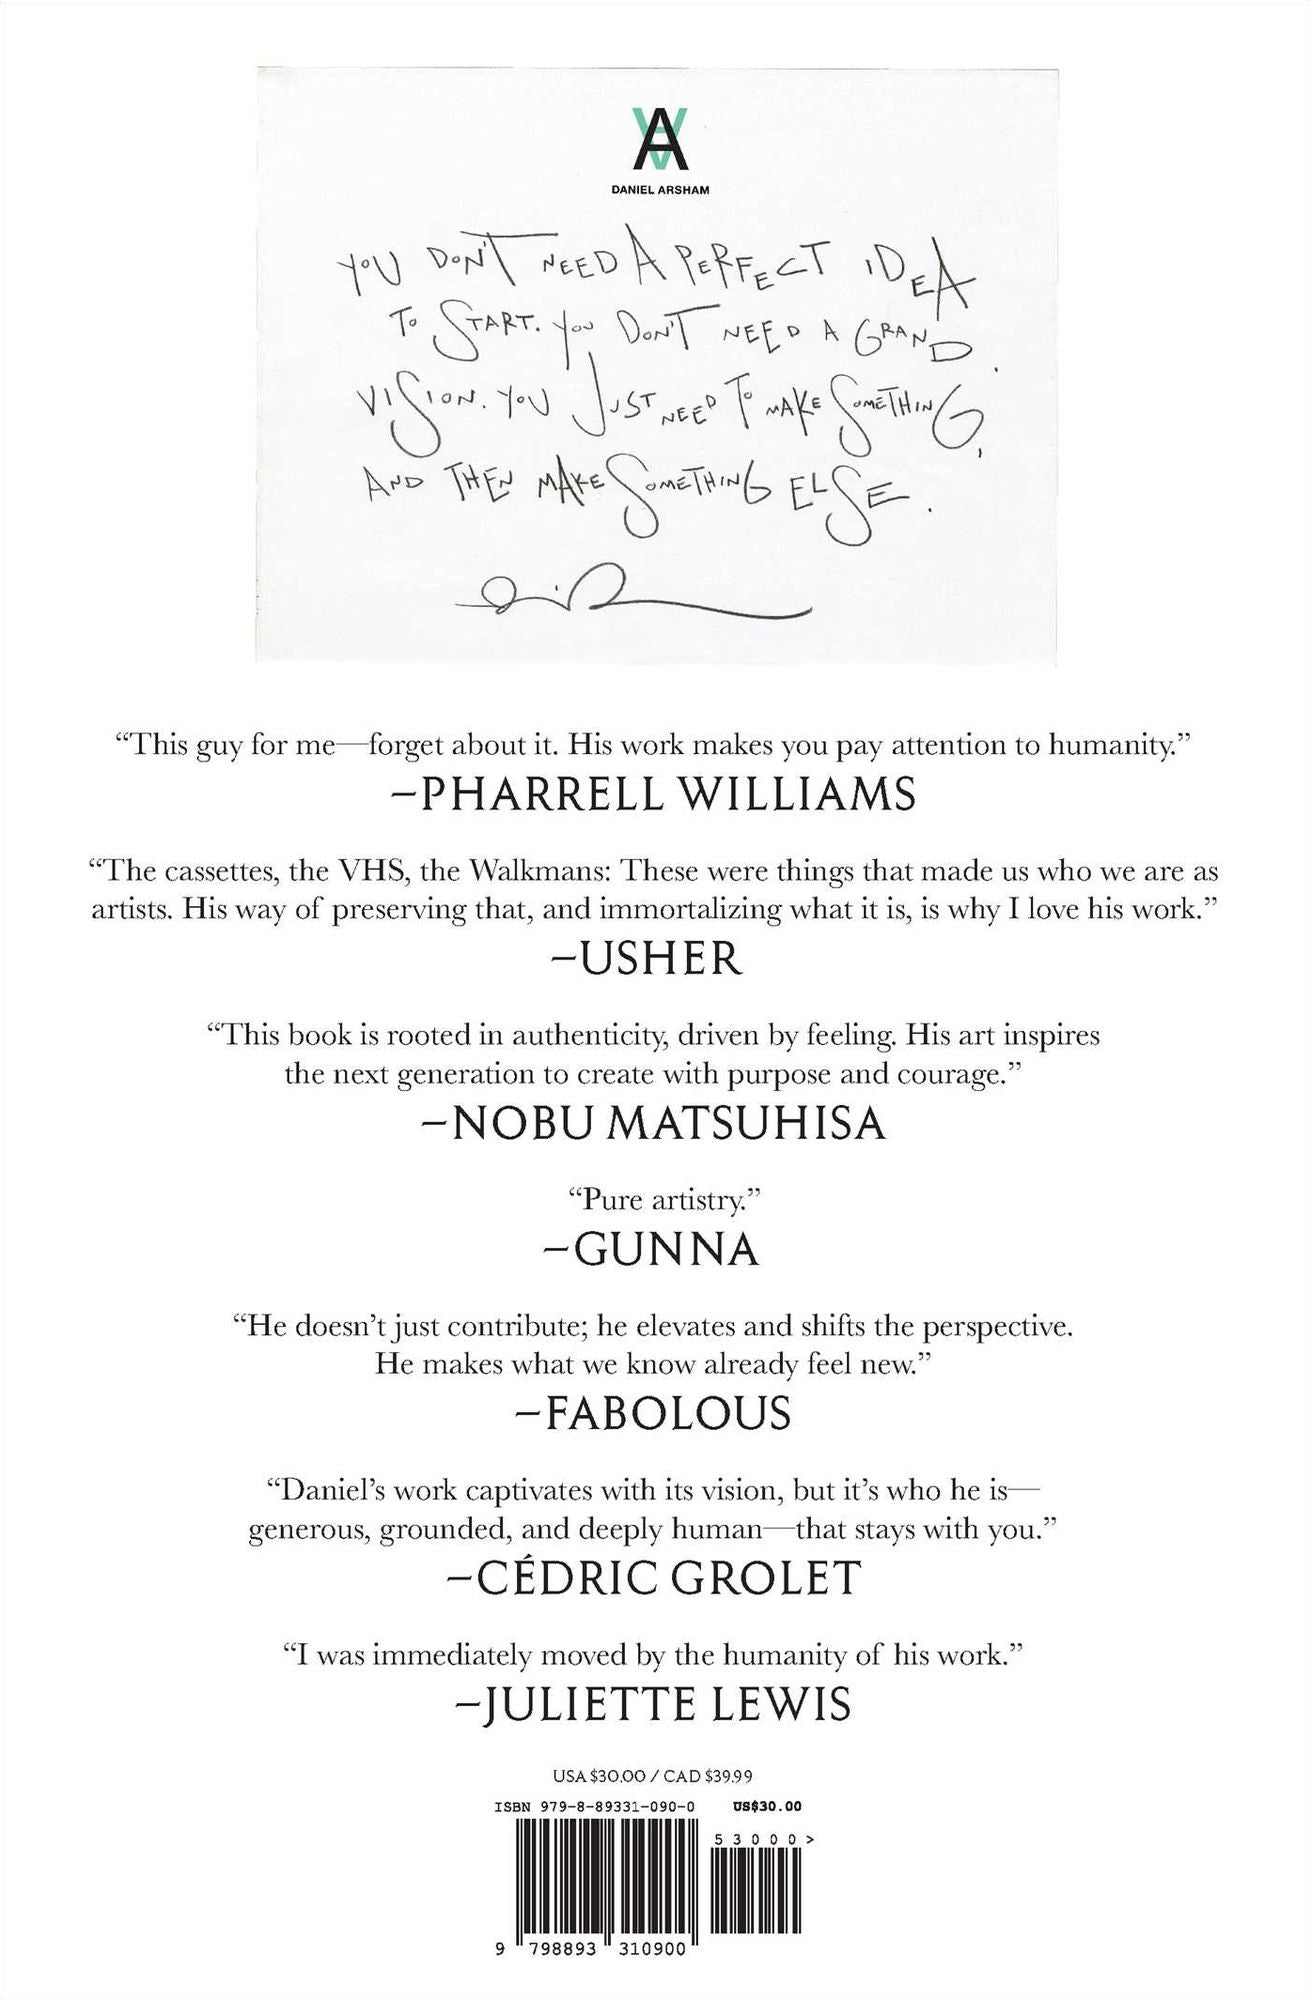 DANIEL ARSHAM
YOU DON'T NEED A PERFECT IDEA
TO START. YOU DON'T NEED A GRAND
VISION. YOU JUST NEED TO MAKE SOMETHING,
AND THEN MAKE SOMETHING ELSE.
“This guy for me—forget about it. His work makes you pay attention to humanity.”
–PHARRELL WILLIAMS
“The cassettes, the VHS, the Walkmans: These were things that made us who we are as
artists. His way of preserving that, and immortalizing what it is, is why I love his work.”
–USHER
“This book is rooted in authenticity, driven by feeling. His art inspires
the next generation to create with purpose and courage.”
–NOBU MATSUHISA
“Pure artistry.”
–GUNNA
“He doesn’t just contribute; he elevates and shifts the perspective.
He makes what we know already feel new.”
–FABOLOUS
“Daniel’s work captivates with its vision, but it’s who he is—
generous, grounded, and deeply human—that stays with you.”
–CÉDRIC GROLET
“I was immediately moved by the humanity of his work.”
–JULIETTE LEWIS
USA $30.00 / CAD $39.99
ISBN 979-8-89331-090-0 US$30.00
5 3 0 0 0 >
9 798893 310900